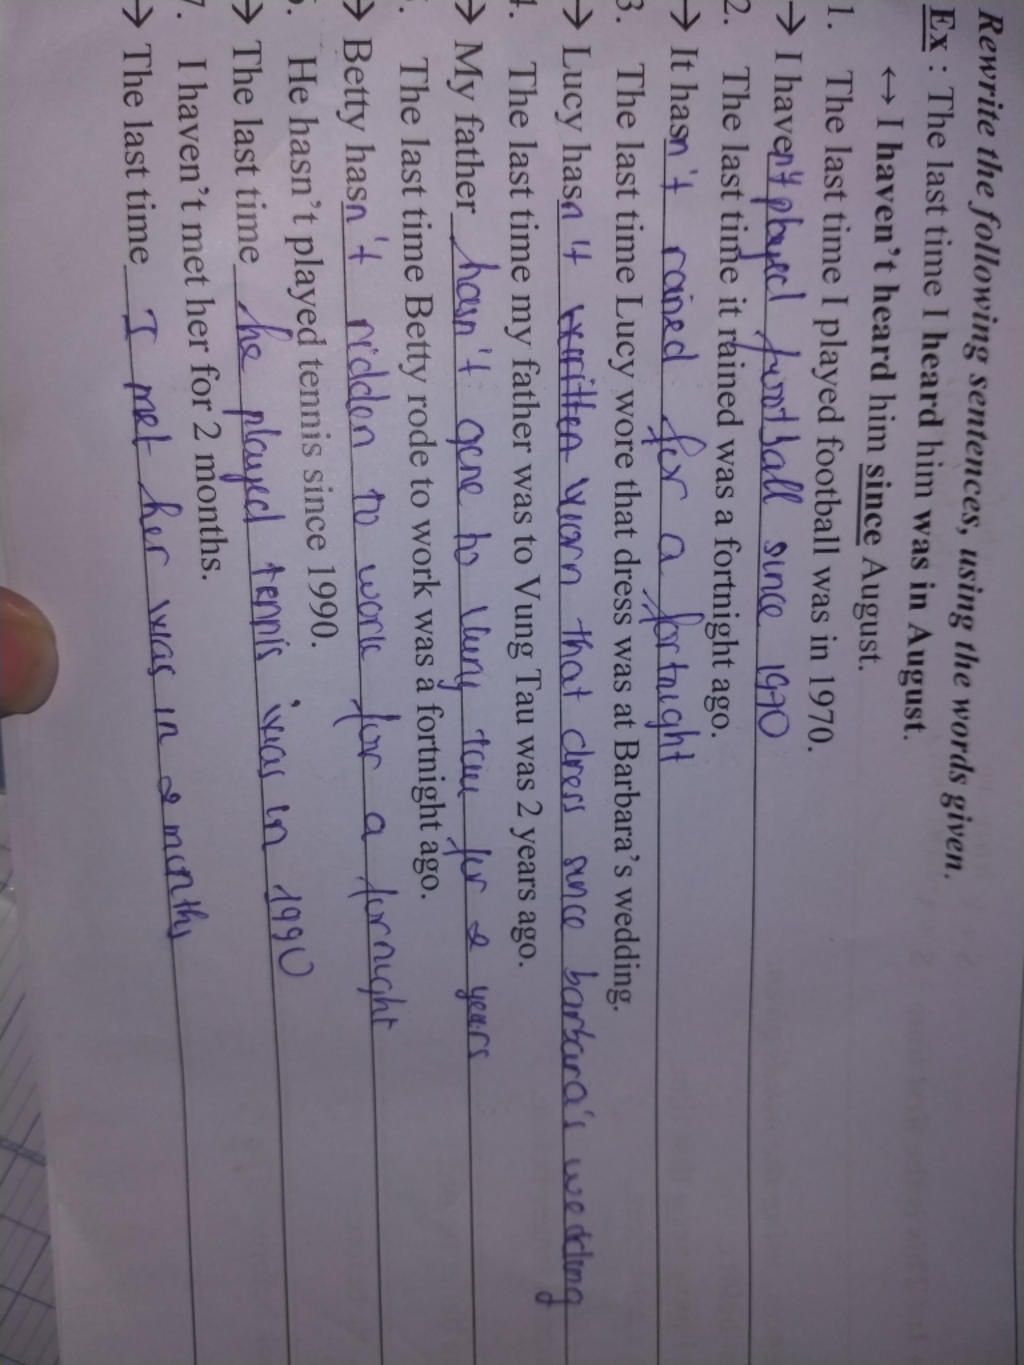 Rewrite the following sentences, using the words given.
Ex : The last time I heard him was in August.
↔ I haven't heard him since August.
1. The last time I played football was in 1970.
→ I haven't played football since 1970
2. The last time it rained was a fortnight ago.
→ It hasn't rained for a fortnight
3. The last time Lucy wore that dress was at Barbara's wedding.
→ Lucy hasn't written worn that dress since barbara's wedding
4. The last time my father was to Vung Tau was 2 years ago.
→ My father hasn't gone to Vung tau for 2 years
. The last time Betty rode to work was a fortnight ago.
→ Betty hasn't ridden to work for a fornight
. He hasn't played tennis since 1990.
→ The last time he played tennis was in 1990
7. I haven't met her for 2 months.
→ The last time I met her was in 2 months